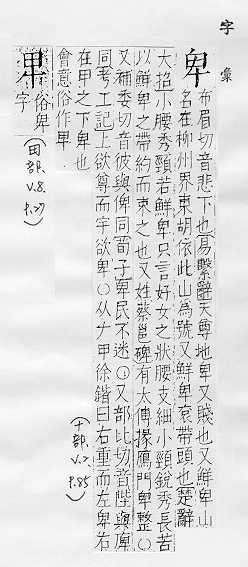 字彙
卑 布眉切音悲下也易繫辭天尊地卑又賤也又鮮卑山
名在柳州界東胡依此山為號又鮮卑袞帶頭也楚辭
大招小腰秀頸若鮮卑只言好女之狀腰支細小頸銳秀長若
以鮮卑之帶約而束之也又姓蔡邕碑有太傅掾鴈門卑整〇
又補委切音彼與俾同荀子卑民不迷〇又部比切音陛與庳
同考工記上欲尊而宇欲卑〇从𠂇甲徐鍇曰右重而左卑右
在甲之下卑也
會意俗作卑
(十部, V.2. P.85)
卑 俗卑
字
(田部, V.8. P.27)